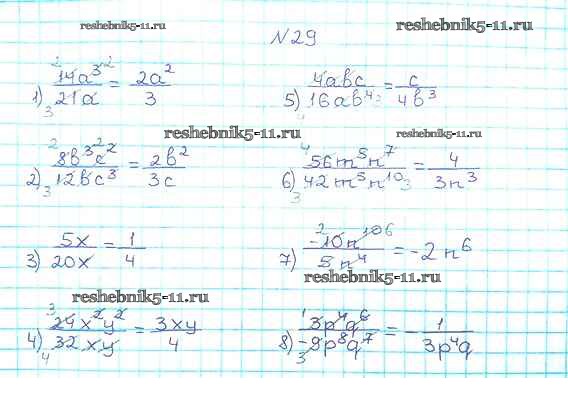 reshebnik5-11.ru reshebnik5-11.ru
№29
1) 14a³/21a = 2a²/3
5) 4abc/16ab⁴ = c/4b³
reshebnik5-11.ru reshebnik5-11.ru
2) 8b³c²/12bc³ = 2b²/3c
6) 56m⁵n⁷/42m⁵n¹⁰ = 4/3n³
3) 5x/20x = 1/4
7) -10n¹⁰/5n⁴ = -2n⁶
reshebnik5-11.ru
reshebnik5-11.ru
4) 24x²y²/32xy = 3xy/4
8) 3p⁴q⁶/-9p⁸q⁷ = -1/3p⁴q